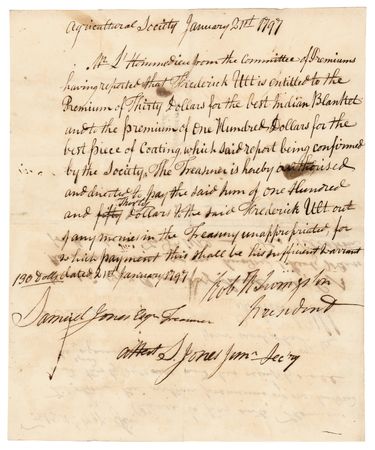 Agricultural Society January 21st 1797
Mr L'Hommedieu from the Committee of Premiums
having reported that Frederick Utt is entitled to the
Premium of Thirty Dollars for the best Indian Blanket
and to the premium of One Hundred Dollars for the
best piece of Coating, which said report being confirmed
by the Society, The Treasurer is hereby authorised
and directed to pay the said sum of One Hundred
Thirty
and fifty Dollars to the said Frederick Utt out
of any monies in the Treasury unappropriated for
which payment this shall be his sufficient warrant
130 Dolls dated 21st January 1797
Rob R Livingston
President
Samuel Jones Esqr Treasurer
attest S Jones Junr Secry